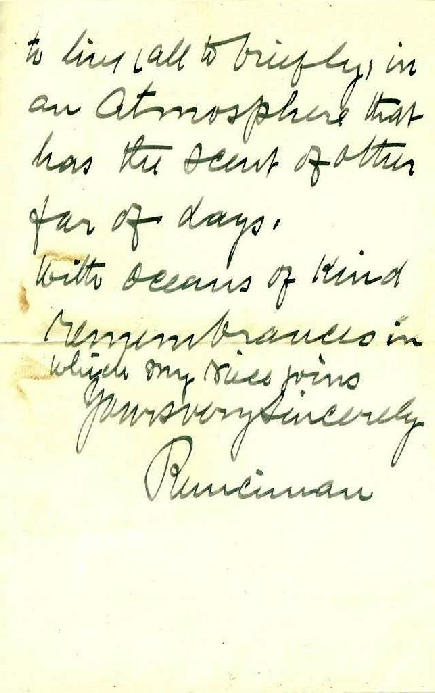 to live, (all to briefly, in
an Atmosphere that
has the scent of other
far of days.
With oceans of kind
remembrances in
which my niece joins
Yours very Sincerely
Runciman